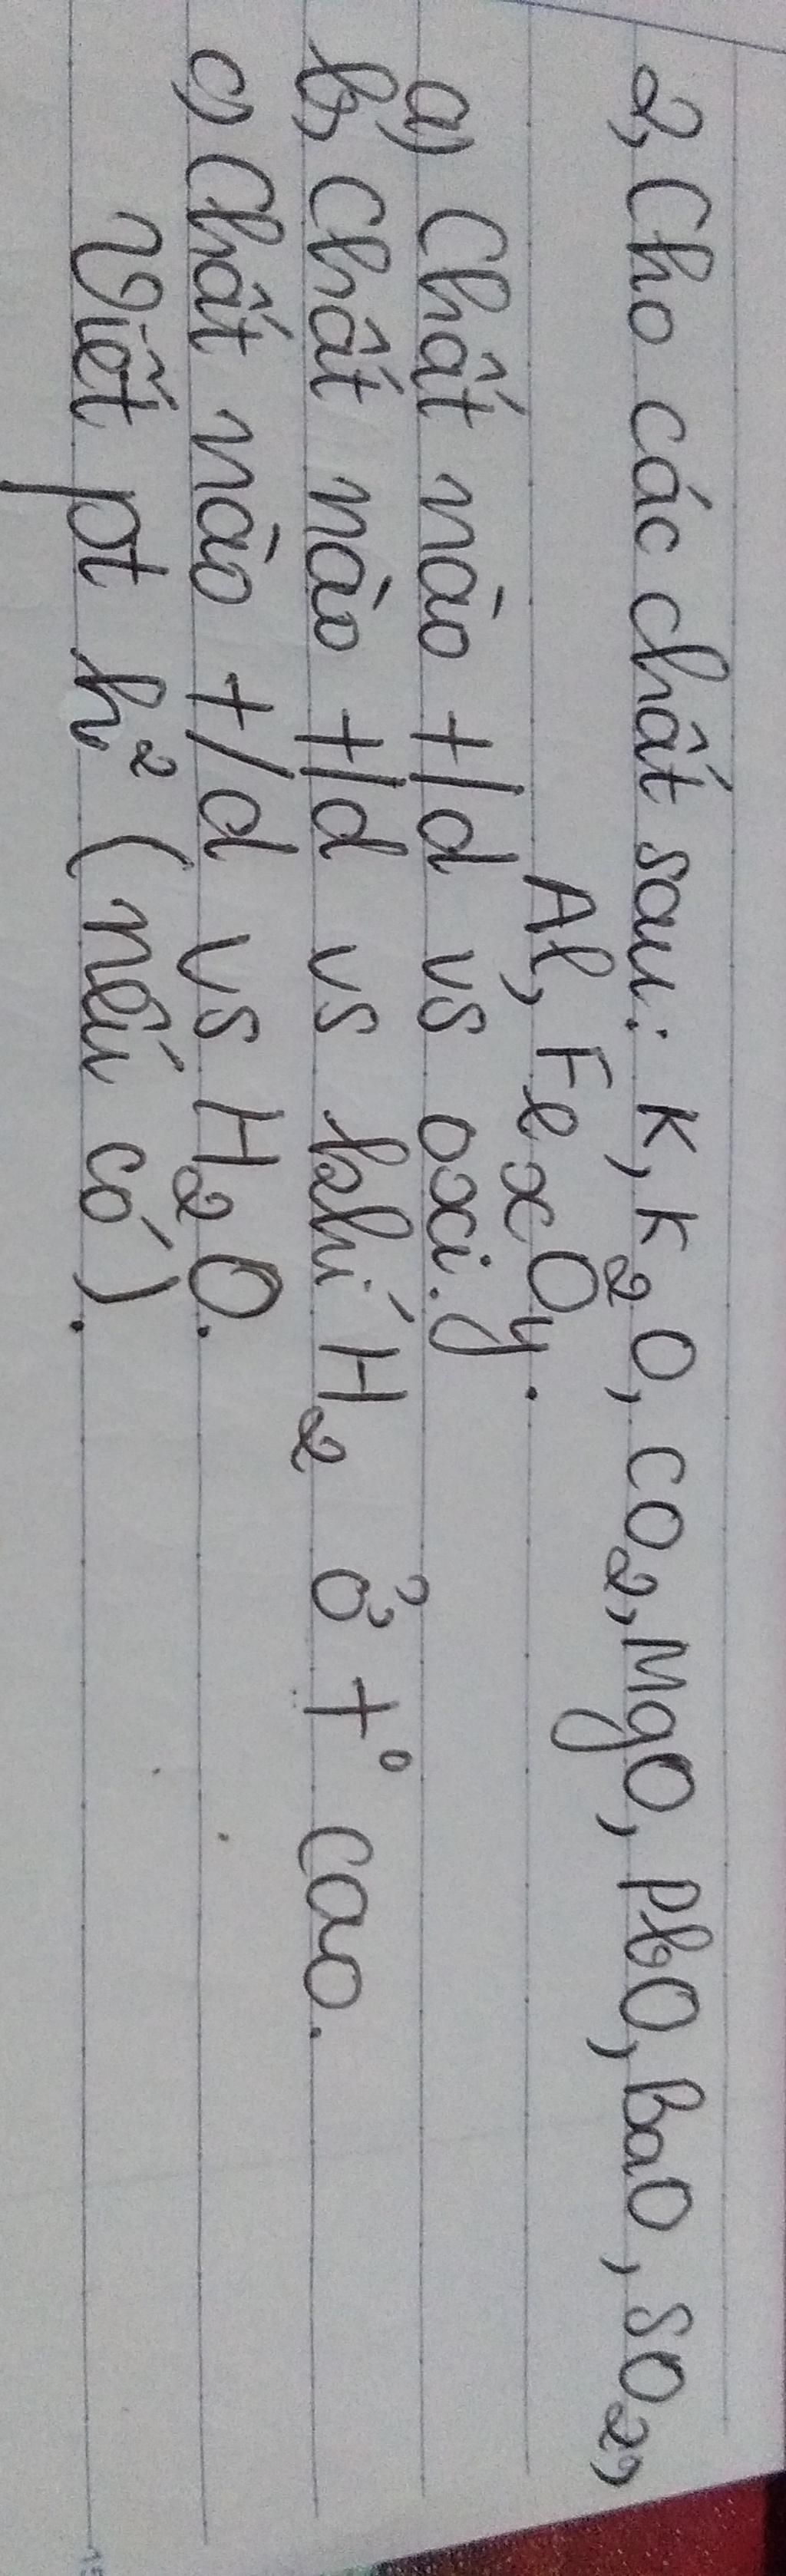 2, Cho các chất sau: K, K₂O, CO₂, MgO, PbO, BaO, SO₂,
Al, FexOy.
a) Chất nào t/d vs oxi.
b, Chất nào t/d vs khí H₂ ở t° cao.
c) Chất nào t/d vs H₂O.
Viết pt h² (nếu có).